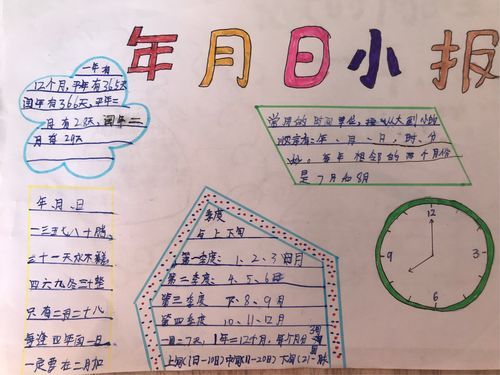 年月日小报
一年有
12个月,平年有365天
闰年有366天,平年二
月有28天,闰年二
月有29天
常用的时间单位,从大到小的
顺序有:年、月、日、时、分
秒。每年相邻的两个月份
是7月和8月
年、月、日
一三五七八十腊,
三十一天永不差
四六九冬三十整
只有二月二十八
每逢四年闰一日
一定要在二月加
季度
与上下旬
第一季度:1、2、3月
第二季度:4、5、6月
第三季度 7、8、9月
第四季度 10、11、12月
一日=7天,1年=12个月,每个月分3旬
上旬(1日-10日)中旬(11-20日)下旬(21-
12
3
6
9